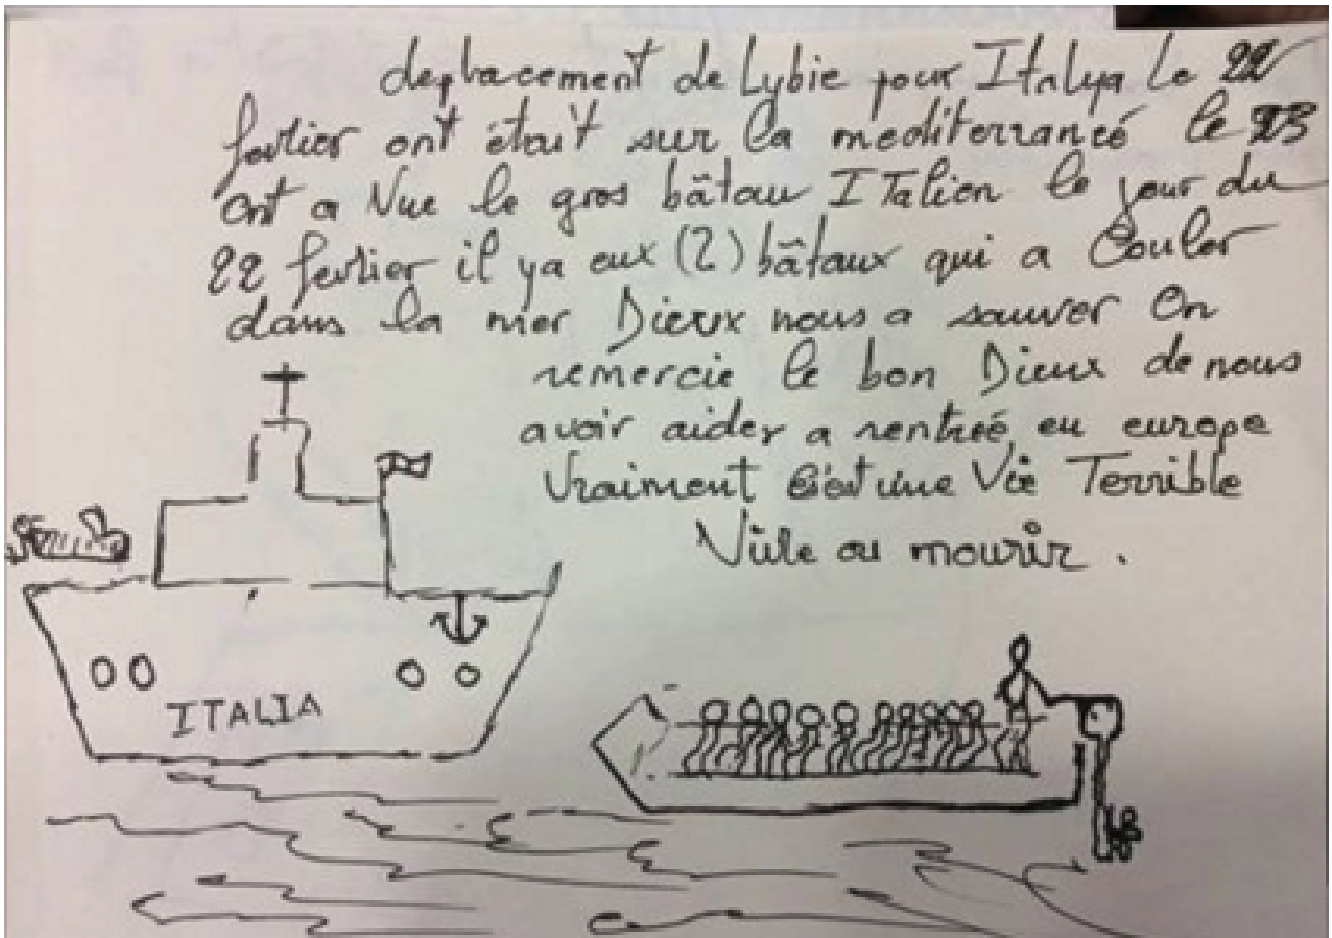 deplacement de Lybie pour Italya le 22
fevrier ont était sur la mediterrancé le 23
ont a Vue le gros bâtau ITalien le jour du
22 fevrier il ya eux (2) bâtaux qui a Couler
dans la mer Dieux nous a sauver On
remercie le bon Dieux de nous
avoir aider a rentreé en europe
Vraiment c'est une Vie Terrible
Vivre ou mourir.
ITALIA